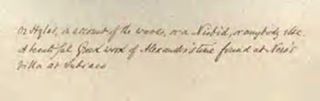 or Hylas, in account of the waves, or a Niobid, or anybody else.
A beautiful Greek work of Alexander's time found at Nero's
Villa at Subiaco